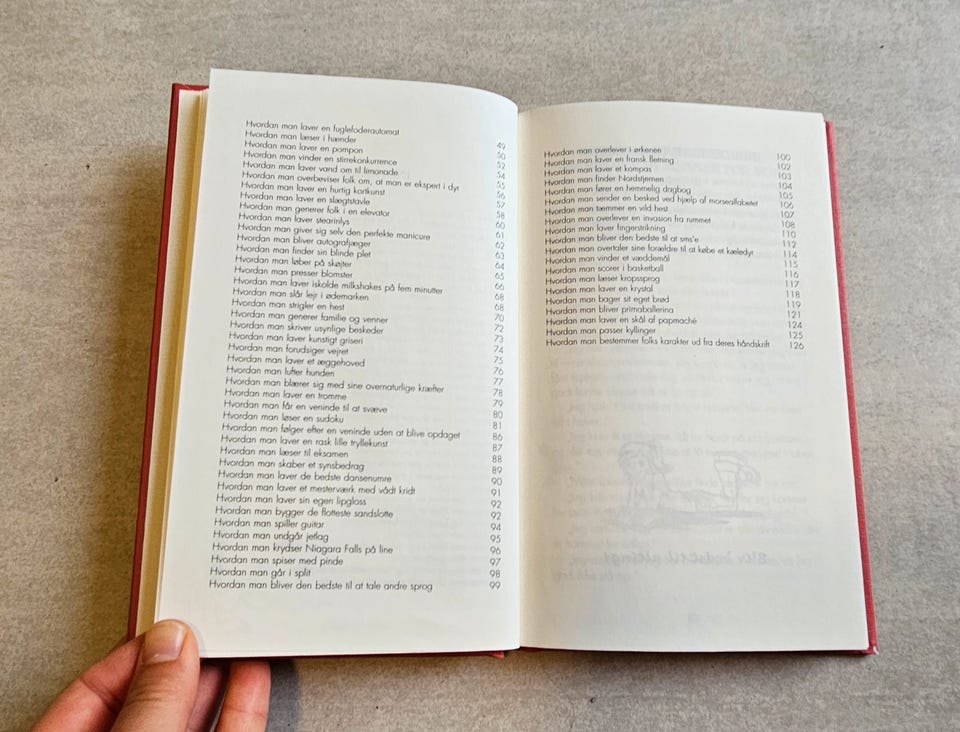 Hvordan man laver en fuglefoderautomat 49
Hvordan man læser i hænder 50
Hvordan man laver en pompon 52
Hvordan man vinder en stirrekonkurrence 54
Hvordan man laver vand om til limonade 55
Hvordan man overbeviser folk om, at man er ekspert i dyr 56
Hvordan man laver en hurtig kortkunst 57
Hvordan man laver en slægtstavle 58
Hvordan man generer folk i en elevator 60
Hvordan man laver stearinlys 61
Hvordan man giver sig selv den perfekte manicure 62
Hvordan man bliver autografjæger 63
Hvordan man finder sin blinde plet 64
Hvordan man løber på skøjter 65
Hvordan man presser blomster 66
Hvordan man laver iskolde milkshakes på fem minutter 68
Hvordan man slår lejr i ødemarken 68
Hvordan man strigler en hest 70
Hvordan man generer familie og venner 72
Hvordan man skriver usynlige beskeder 73
Hvordan man laver kunstigt griseri 74
Hvordan man forudsiger vejret 75
Hvordan man laver et æggehoved 76
Hvordan man lufter hunden 77
Hvordan man blærer sig med sine overnaturlige kræfter 78
Hvordan man laver en tromme 79
Hvordan man får en veninde til at svæve 80
Hvordan man løser en sudoku 81
Hvordan man følger efter en veninde uden at blive opdaget 86
Hvordan man laver en rask lille tryllekunst 87
Hvordan man læser til eksamen 88
Hvordan man skaber et synsbedrag 89
Hvordan man laver de bedste dansenumre 90
Hvordan man laver et mesterværk med vådt kridt 91
Hvordan man laver sin egen lipgloss 92
Hvordan man bygger de flotteste sandslotte 92
Hvordan man spiller guitar 94
Hvordan man undgår jetlag 95
Hvordan man krydser Niagara Falls på line 96
Hvordan man spiser med pinde 97
Hvordan man går i split 98
Hvordan man bliver den bedste til at tale andre sprog 99
Hvordan man overlever i ørkenen 100
Hvordan man laver en fransk fletning 102
Hvordan man laver et kompas 103
Hvordan man finder Nordstjernen 104
Hvordan man fører en hemmelig dagbog 105
Hvordan man sender en besked ved hjælp af morsealfabetet 106
Hvordan man tæmmer en vild hest 107
Hvordan man overlever en invasion fra rummet 108
Hvordan man laver fingerstrikning 110
Hvordan man bliver den bedste til at sms'e 112
Hvordan man overtaler sine forældre til at købe et kæledyr 114
Hvordan man vinder et væddemål 115
Hvordan man scorer i basketball 116
Hvordan man læser kropssprog 117
Hvordan man laver en krystal 118
Hvordan man bager sit eget brød 119
Hvordan man bliver primaballerina 121
Hvordan man laver en skål af papmaché 124
Hvordan man passer kyllinger 125
Hvordan man bestemmer folks karakter ud fra deres håndskrift 126